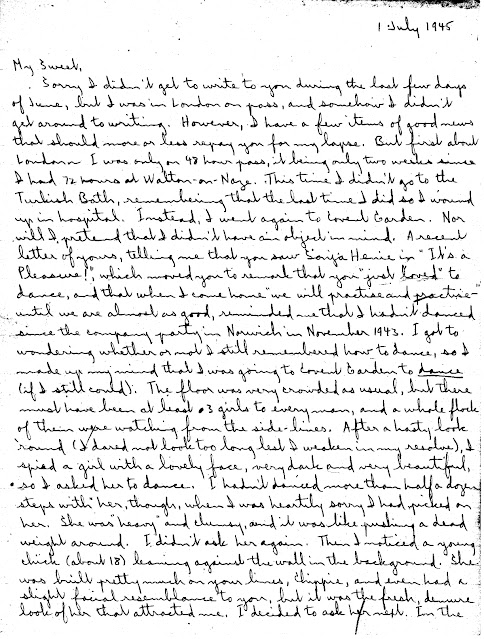 1 July 1945
My Sweet,
Sorry I didn't get to write to you during the last few days
of June, but I was in London on pass, and somehow I didn't
get around to writing. However, I have a few items of good news
that should more or less repay you for my lapse. But first about
London - I was only on 48 hour pass, it being only two weeks since
I had 72 hours at Walton-on-Naze. This time I didn't go to the
Turkish Bath, remembering that the last time I did so I wound
up in hospital. Instead, I went again to Covent Garden. Nor
will I pretend that I didn't have an object in mind. A recent
letter of yours, telling me that you saw Sonja Henie in "It's a
Pleasure!", which moved you to remark that you "just loved" to
dance, and that when I come home "we will practise and practise -
until we are almost as good, reminded me that I hadn't danced
since the company party in Norwich in November 1943. I got to
wondering whether or not I still remembered how to dance, so I
made up my mind that I was going to Covent Garden to dance
(if I still could). The floor was very crowded as usual, but there
must have been at least 3 girls to every man, and a whole flock
of them were watching from the side-lines. After a hasty look
'round (I dared not look too long lest I weaken in my resolve), I
spied a girl with a lovely face, very dark and very beautiful,
so I asked her to dance. I hadn't danced more than half a dozen
steps with her, though, when I was heartily sorry I had picked on
her. She was "heavy" and clumsy, and it was like pushing a dead
weight around. I didn't ask her again. Then I noticed a young
chick (about 18) leaning against the wall in the background. She
was built pretty much on your lines, Chippie, and even had a
slight facial resemblance to you, but it was the fresh, demure
look of her that attracted me. I decided to ask her next. In the